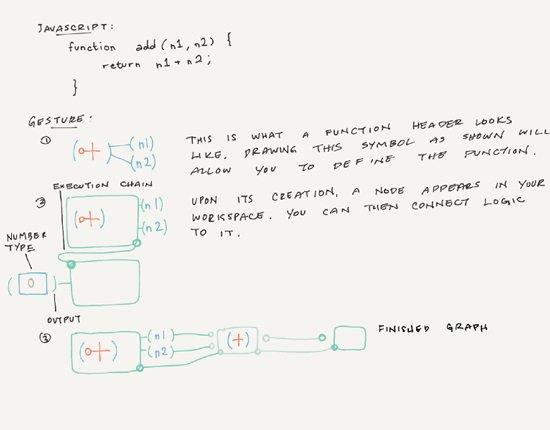 JAVASCRIPT:
function add (n1, n2) {
return n1 + n2;
}
GESTURE:
①
(o+
(n1)
(n2)
THIS IS WHAT A FUNCTION HEADER LOOKS
LIKE. DRAWING THIS SYMBOL AS SHOWN WILL
ALLOW YOU TO DEFINE THE FUNCTION.
EXECUTION CHAIN
②
(o+)
(n1)
(n2)
UPON ITS CREATION, A NODE APPEARS IN YOUR
WORKSPACE. YOU CAN THEN CONNECT LOGIC
TO IT.
NUMBER
TYPE
( 0 )
OUTPUT
③
(o+)
(n1)
(n2)
(+)
FINISHED GRAPH